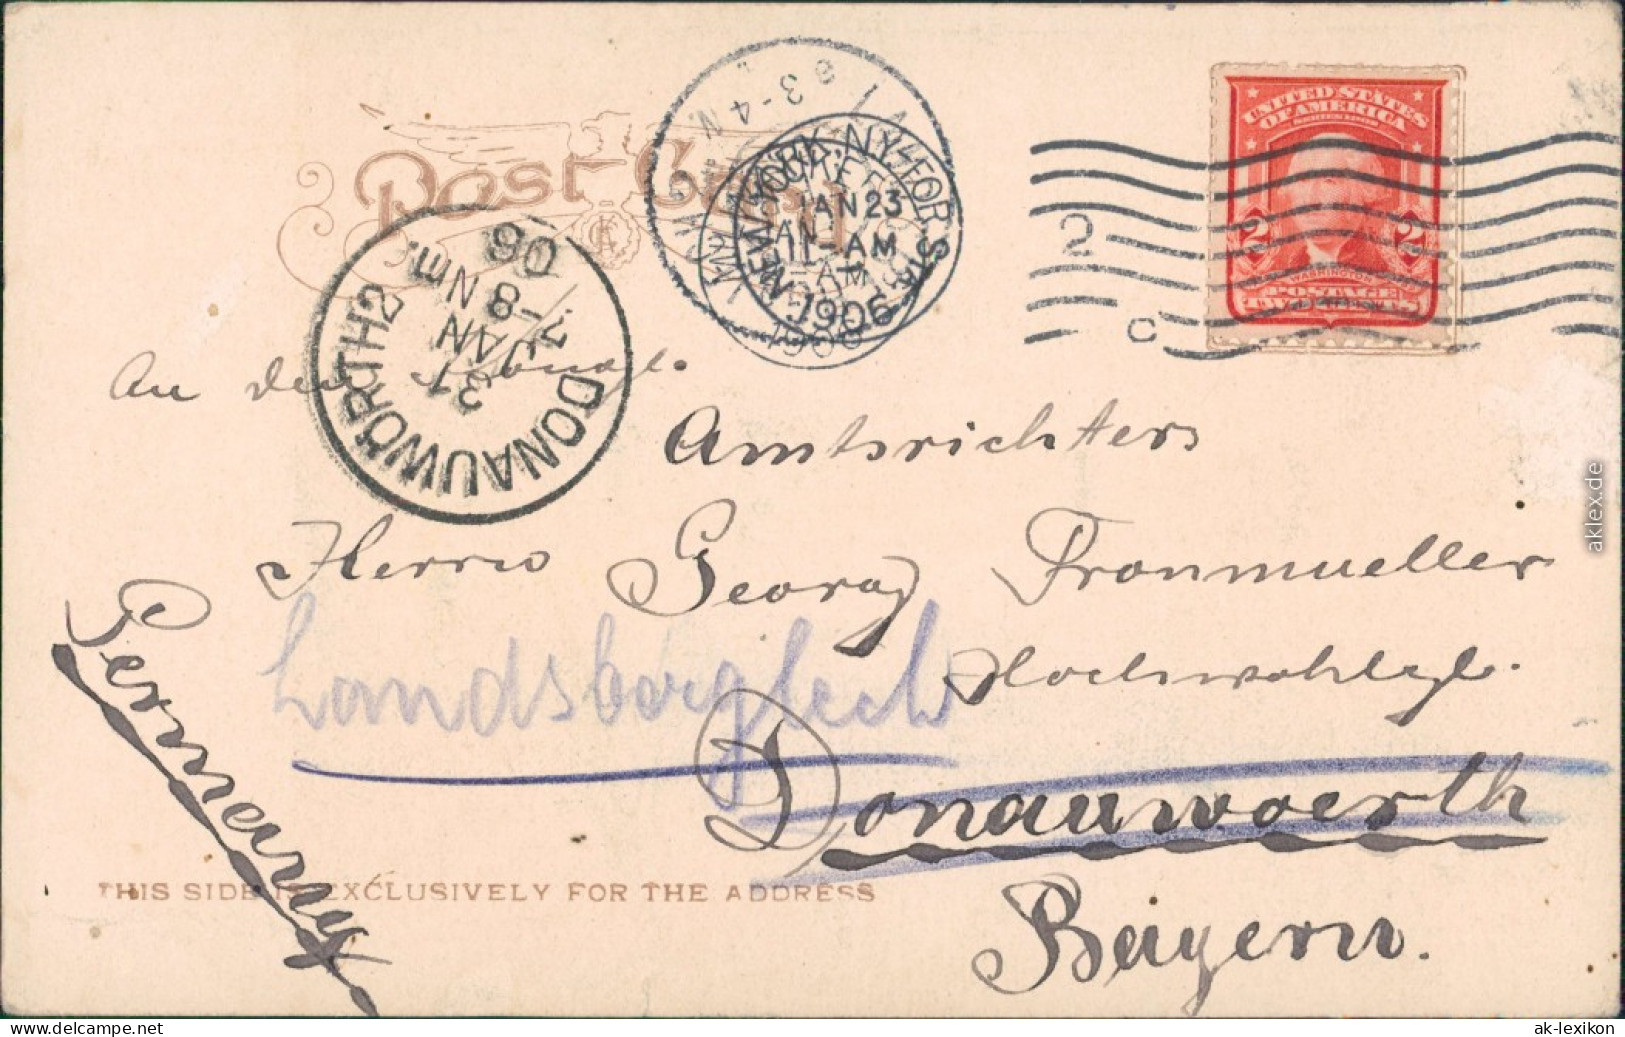 Post Card
NEW YORK, N.Y. FOR. STA.
JAN 23
11-AM
1906
3-4 N
UNITED STATES
OF AMERICA
2 2
WASHINGTON
POSTAGE
TWO CENTS
2
C
DONAUWÖRTH 2
31
JAN
7-8 NM
06
An den Königl.
Amtsrichters
Herrn Georg Fronmueller
Hochwohlgb.
Landsberg Lech
Donauwoerth
Bayern.
Germany
THIS SIDE IS EXCLUSIVELY FOR THE ADDRESS
aklex.de
www.delcampe.net
ak-lexikon